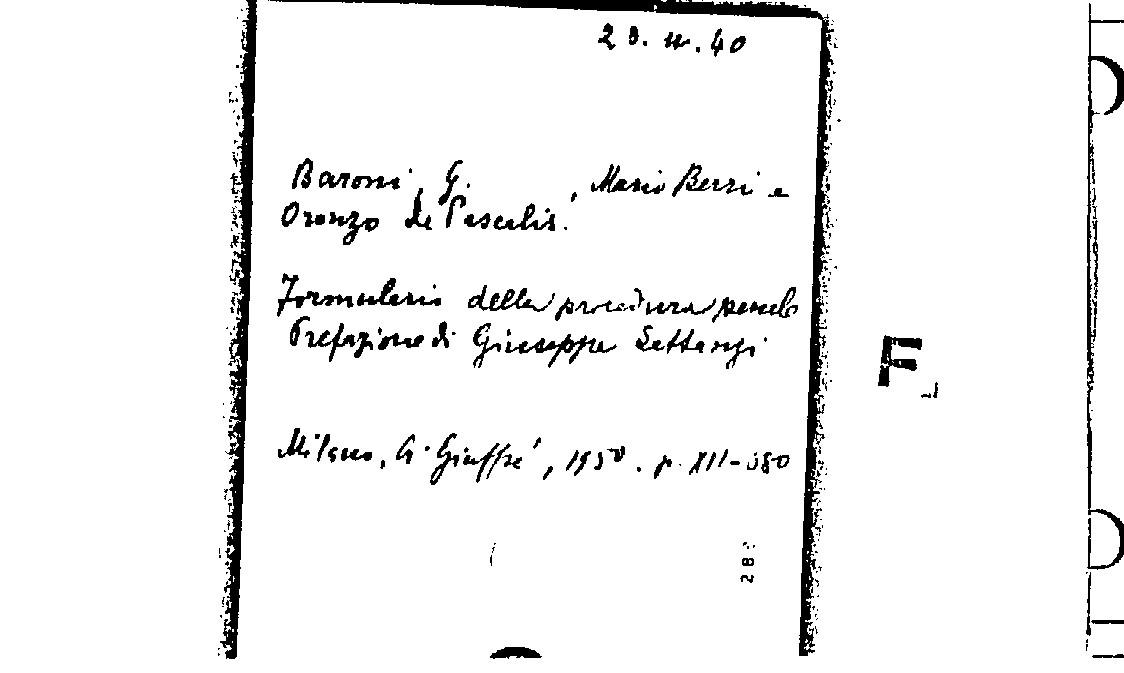 Baroni, G. , Mario Berri e
Oronzo de Pascalis.
Formulario della procedura penale
Prefazione di Giuseppe Lattanzi
Milano, A. Giuffrè, 1950. p. XII-580
F